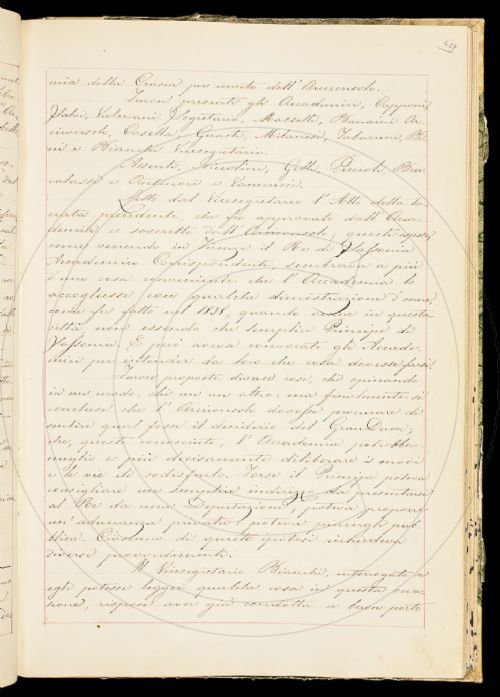 mia della Crusca per invito dell'Arciconsolo.
Furon presenti gli Accademici, Capponi,
Valeriani Segretario, Masselli, Bonaini Ar-
ciconsolo, Casella, Guasti, Milanesi, Tabarrini, Bi-
ni e Bianchi Vicesegretario.
Assenti, Niccolini, Gelli, Puccioti, Buc
calassi e Vannucci.
Letto dal Vicesegretario l'Atto della tor-
nata precedente, che fu approvato dall'Acca-
demia e soscritto dall'Arciconsolo; questi espose
come venendo in Firenze il Re di Sassonia
Accademico Corrispondente, sembrava a più
d'uno cosa conveniente che l'Accademia lo
accogliesse con qualche dimostrazione d'onore,
come fu fatto nel 1838, quando venne in questa
città, non essendo che semplice Principe di
Sassonia. E però aveva convocato gli Accade-
mici per intender da loro che cosa dovesse farsi.
Furon proposte diverse cose, chi opinando
in un modo, chi in un altro: ma finalmente si
concluse che l'Arciconsolo dovesse procurare di
sentire qual fosse il desiderio del GranDuca;
che, questo conosciuto, l'Accademia potrebbe
meglio e più decisamente deliberare i modi
e le vie di sodisfarlo. Forse il Principe poteva
consigliare un semplice indirizzo da presentarsi
al Re da una Deputazione; poteva proporre
un'adunanza privata; poteva pubb-
blica. Ciascuno di queste ipotesi richiedeva
diversi provvedimenti.
Il Vicesegretario Bianchi, interrogato se
egli potesse legger qualche cosa in questa occa-
sione, rispose aver già condotta a buon porto